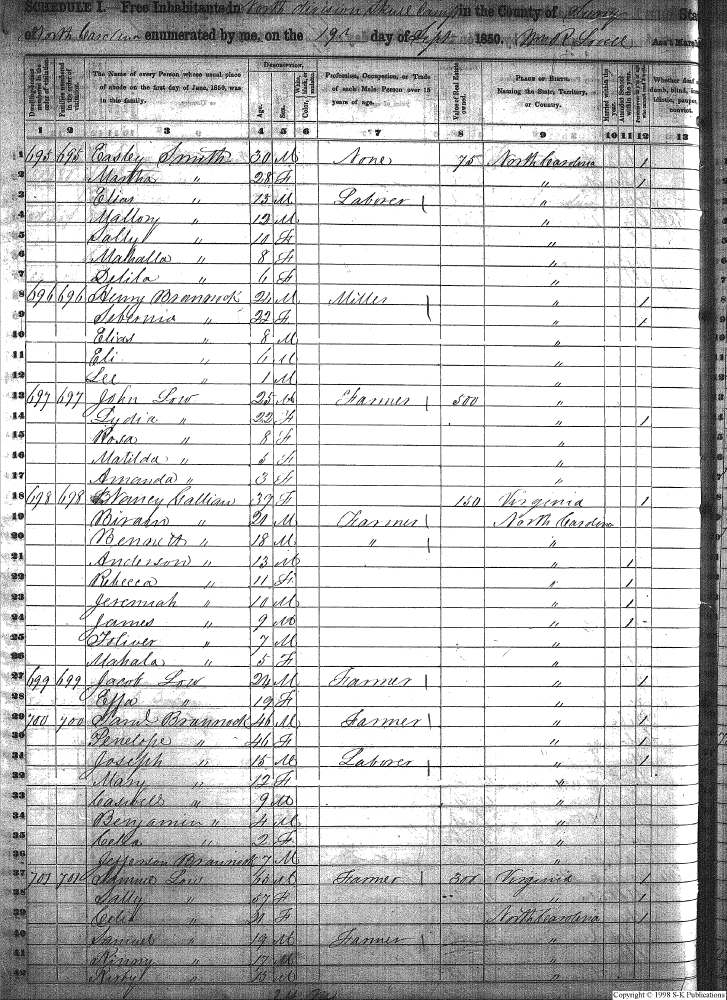 SCHEDULE I.—Free Inhabitants in North division Skull Camp in the County of Surry Sta
of North Carolina enumerated by me, on the 19th day of Sept 1850. Wm R. Lovell Ass't Marsh
DESCRIPTION.
The Name of every Person whose usual place of abode on the first day of June, 1850, was in this family.
Age. Sex.
Profession, Occupation, or Trade of each Male Person over 15 years of age.
Value of Real Estate owned.
PLACE OF BIRTH. Naming the State, Territory, or Country.
Whether deaf dumb, blind, idiotic, pauper, convict.
1 2 3 4 5 6 7 8 9 10 11 12 13
1 695 695 Easley Smith 30 M None 75 North Carolina 1
2 Martha " 28 F " 1
3 Elias " 13 M Laborer "
4 Mallory " 12 M "
5 Sally " 10 F "
6 Mahalla " 8 F "
7 Delila " 6 F "
8 696 696 Henry Brannock 24 M Miller " 1
9 22 F " 1
10 Elias " 8 M "
11 Eli " 6 M "
12 Lee " 1 M "
13 697 697 John Low 25 M Farmer 500 "
14 Lydia " 22 F " 1
15 Rosa " 8 F "
16 Matilda " 5 F "
17 Amanda " 3 F "
18 698 698 Nancy Callian 39 F 150 Virginia 1
19 Biram " 21 M Farmer North Carolina
20 Bennett " 18 M " "
21 Anderson " 13 M " 1
22 Rebecca " 11 F " 1
23 Jeremiah " 10 M " 1
24 James " 9 M " 1
25 Toliver " 7 M "
26 Mahala " 5 F "
27 699 699 Jacob Low 24 M Farmer " 1
28 Effa " 19 F "
29 700 700 Saml Brannock 46 M Farmer " 1
30 Penelope " 46 F " 1
31 Joseph " 15 M Laborer " 1
32 Mary " 12 F "
33 Caswell " 9 M "
34 Benjamin " 4 M "
35 Celia " 2 F "
36 Jefferson Brannock 7 M "
37 701 701 Samuel Low M Farmer 300 Virginia 1
38 Sally " 57 F " 1
39 " F North Carolina 1
40 Samuel " 19 M Farmer "
41 " 17 M "
42 " 15 M "
Copyright © 1998 S-K Publications